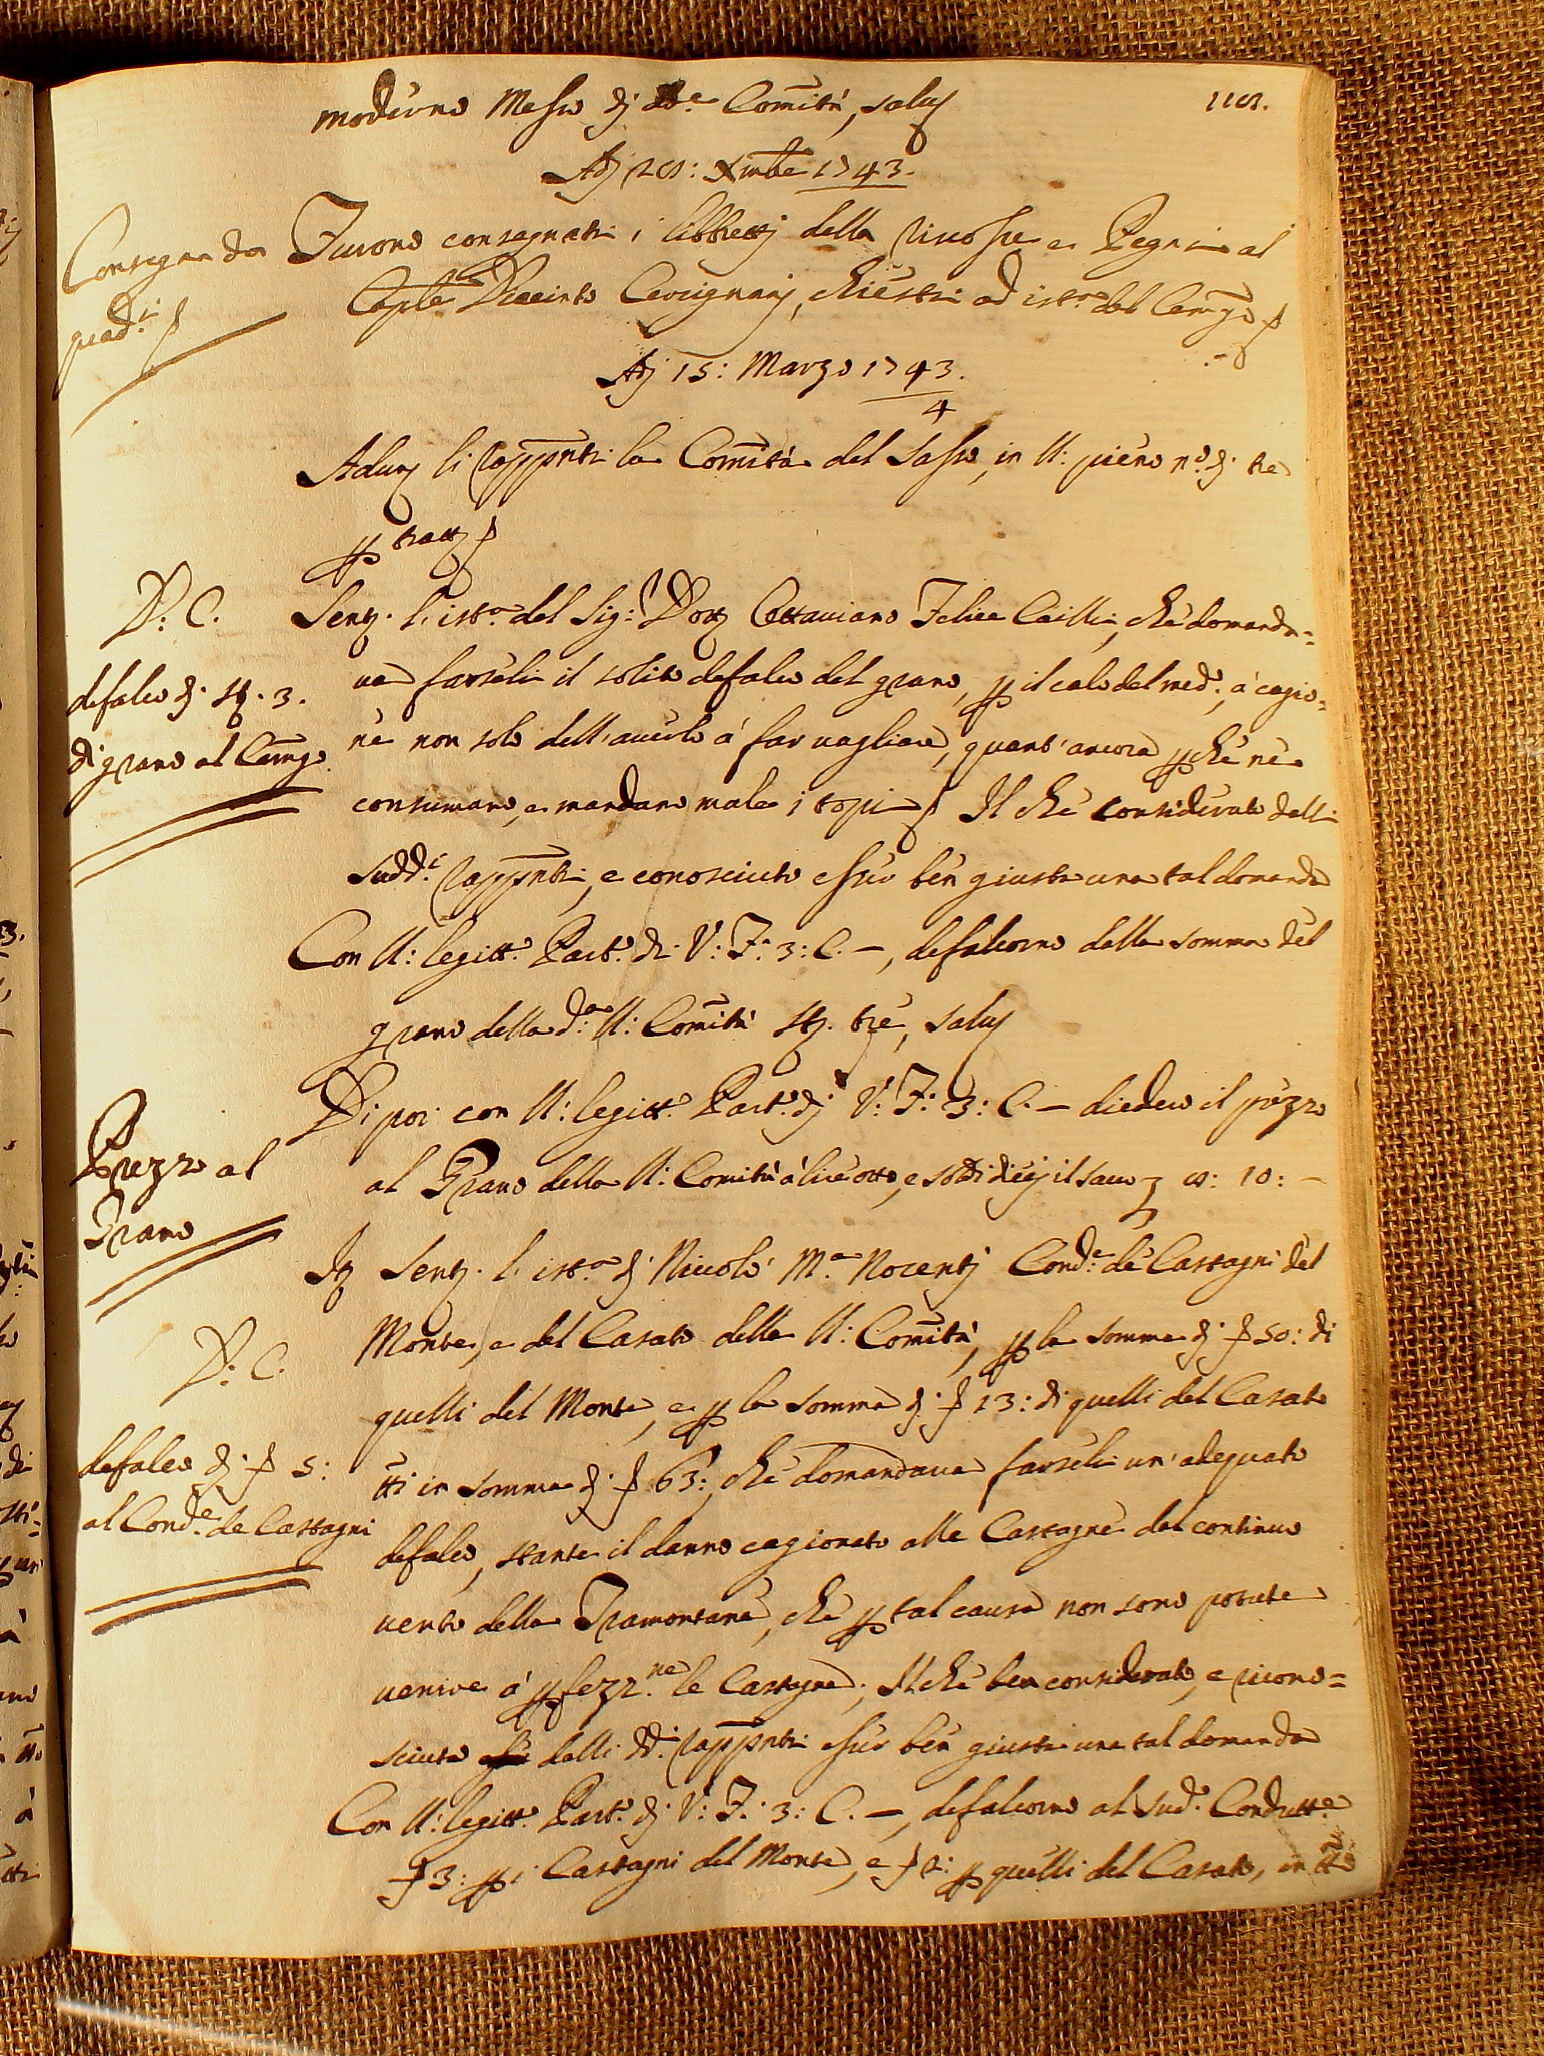 moderno Messo di d.ª Com̃ità, salvj
118.
Adj 28: Xmbre 1743.
Consegna da
pred.i
Furono consegnati i libbretti della riscossa e Pegni al
Cap.le Diacinto Cerrignani, chiesti ad ist.ª del Camg.º
Adj 15: Marzo 1743/4
Adun. li Rapp̃nti la Com̃ità del Sasso, in N: pieno n.º di tre
p trattj
D: C.
defalco di st. 3.
di grano al Camg.º
Sent. l'ist.ª del Sig: Dott. Ottaviano Felice Cailli, che domanda=
va farseli il solito defalco del grano, p il calo del med.º, à cagio=
ne non solo dell'averlo à far vagliare, quant'ancora pchè ne
consumano, e mandano male i topi Il che considerato dalli
sudd.i Rapp̃nti, e conosciuto esser ben giusta una tal domanda
Con N: legitt.º Part.º di V: F: 3: C. —, defalcorno dalla somma del
grano della d.ª N: Com̃ità st. trè, salvj
Prezzo al
Grano
Di poi con N: legitt.º Part.º di V: F: 3: C. — diedero il prezzo
al Grano della N: Com̃ità à lire otto, e soldi diecj il sacco 8: 10: —
It Sent. l'ist.ª di Niccolò M.ª Nocentj Cond.e de Castagni del
Monte, e del Casato della N: Com̃ità, p la somma di ƒ 50: di
quelli del Monte, e p la somma di ƒ 13: di quelli del Casato
D: C.
defalco di ƒ 5:
al Cond.e de Castagni
tti in somma di ƒ 63:, che domandava farseli un'adeguato
defalco, stante il danno cagionato alle Castagne dal continuo
vento della Tramontana, che p tal causa non sono potute
venire à pfezz.ne le Castagne; Il che ben considerato, e ricono=
sciuto dalli dd.i Rapp̃nti esser ben giusta una tal domanda
Con N: legitt.º Part.º di V: F: 3: C. —, defalcorno al sud.º Condutt.e
ƒ 3: p i Castagni del Monte, e ƒ 2: p quelli del Casato, in tt.º